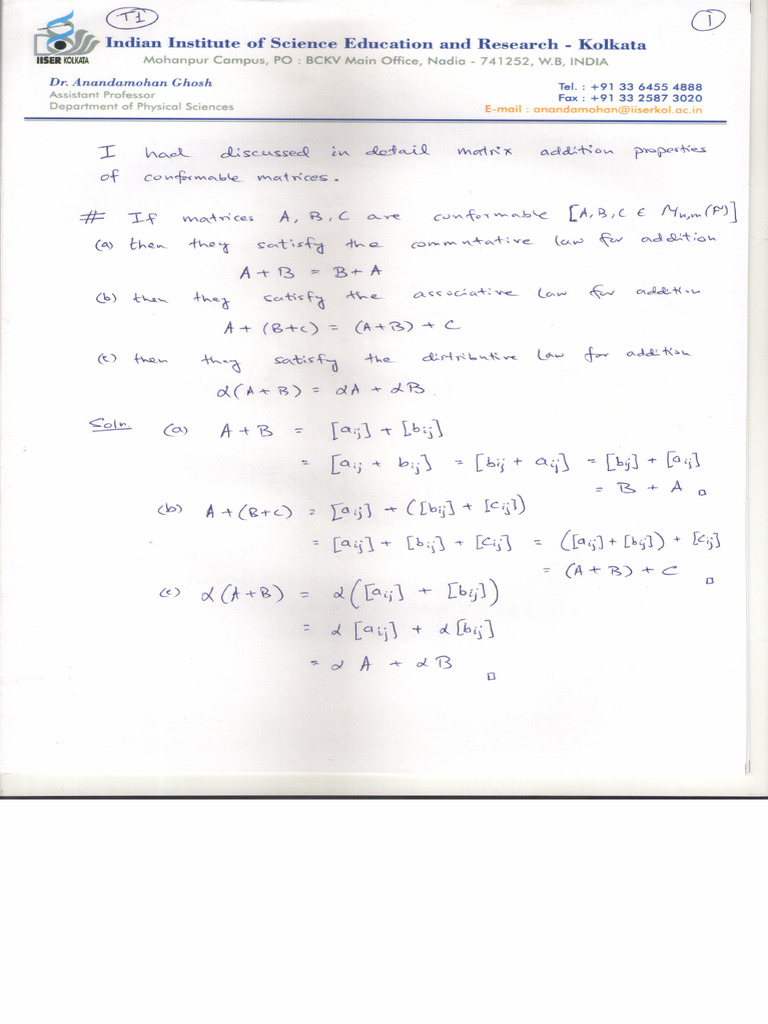 T1
1
IISER KOLKATA
Indian Institute of Science Education and Research - Kolkata
Mohanpur Campus, PO : BCKV Main Office, Nadia - 741252, W.B, INDIA
Dr. Anandamohan Ghosh
Assistant Professor
Department of Physical Sciences
Tel. : +91 33 6455 4888
Fax : +91 33 2587 3020
E-mail : anandamohan@iiserkol.ac.in
I had discussed in detail matrix addition properties
of conformable matrices.
# If matrices A, B, C are conformable [A, B, C ∈ Mn,m(F)]
(a) then they satisfy the commutative law for addition
A + B = B + A
(b) then they satisfy the associative law for addition
A + (B+C) = (A+B) + C
(c) then they satisfy the distributive law for addition
α(A+B) = αA + αB
Soln. (a) A + B = [aij] + [bij]
= [aij + bij] = [bij + aij] = [bij] + [aij]
= B + A □
(b) A + (B+C) = [aij] + ([bij] + [cij])
= [aij] + [bij] + [cij] = ([aij] + [bij]) + [cij]
= (A + B) + C □
(c) α(A+B) = α([aij] + [bij])
= α[aij] + α[bij]
= αA + αB □